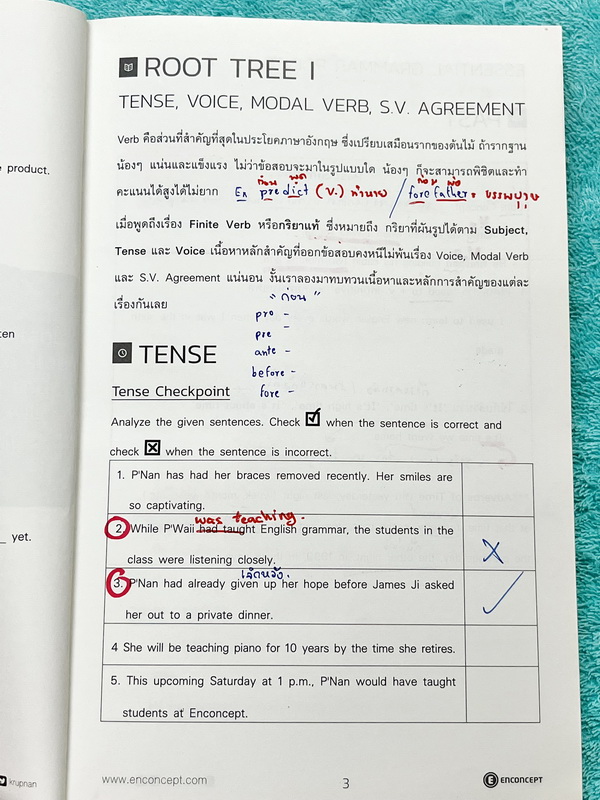 e product.
ten
_ yet.
krupnan
ROOT TREE I
TENSE, VOICE, MODAL VERB, S.V. AGREEMENT
Verb คือส่วนที่สำคัญที่สุดในประโยคภาษาอังกฤษ ซึ่งเปรียบเสมือนรากของต้นไม้ ถ้ารากฐาน
น้องๆ แน่นและแข็งแรง ไม่ว่าข้อสอบจะมาในรูปแบบใด น้องๆ ก็จะสามารถพิชิตและทำ
ก่อน พูด ก่อน พ่อ
คะแนนได้สูงได้ไม่ยาก Ex predict (v.) ทำนาย / forefather = บรรพบุรุษ
เมื่อพูดถึงเรื่อง Finite Verb หรือกริยาแท้ ซึ่งหมายถึง กริยาที่ผันรูปได้ตาม Subject,
Tense และ Voice เนื้อหาหลักสำคัญที่ออกข้อสอบคงหนีไม่พ้นเรื่อง Voice, Modal Verb
และ S.V. Agreement แน่นอน งั้นเราลองมาทบทวนเนื้อหาและหลักการสำคัญของแต่ละ
เรื่องกันเลย
"ก่อน"
pro -
pre -
ante -
before -
fore -
TENSE
Tense Checkpoint
Analyze the given sentences. Check ☑ when the sentence is correct and
check ☒ when the sentence is incorrect.
1. P'Nan has had her braces removed recently. Her smiles are
so captivating.
was teaching.
2. While P'Waii had taught English grammar, the students in the
class were listening closely. ✗
เลิกหวัง.
3. P'Nan had already given up her hope before James Ji asked
her out to a private dinner. ✓
4 She will be teaching piano for 10 years by the time she retires.
5. This upcoming Saturday at 1 p.m., P'Nan would have taught
students at Enconcept.
www.enconcept.com
3
ENCONCEPT